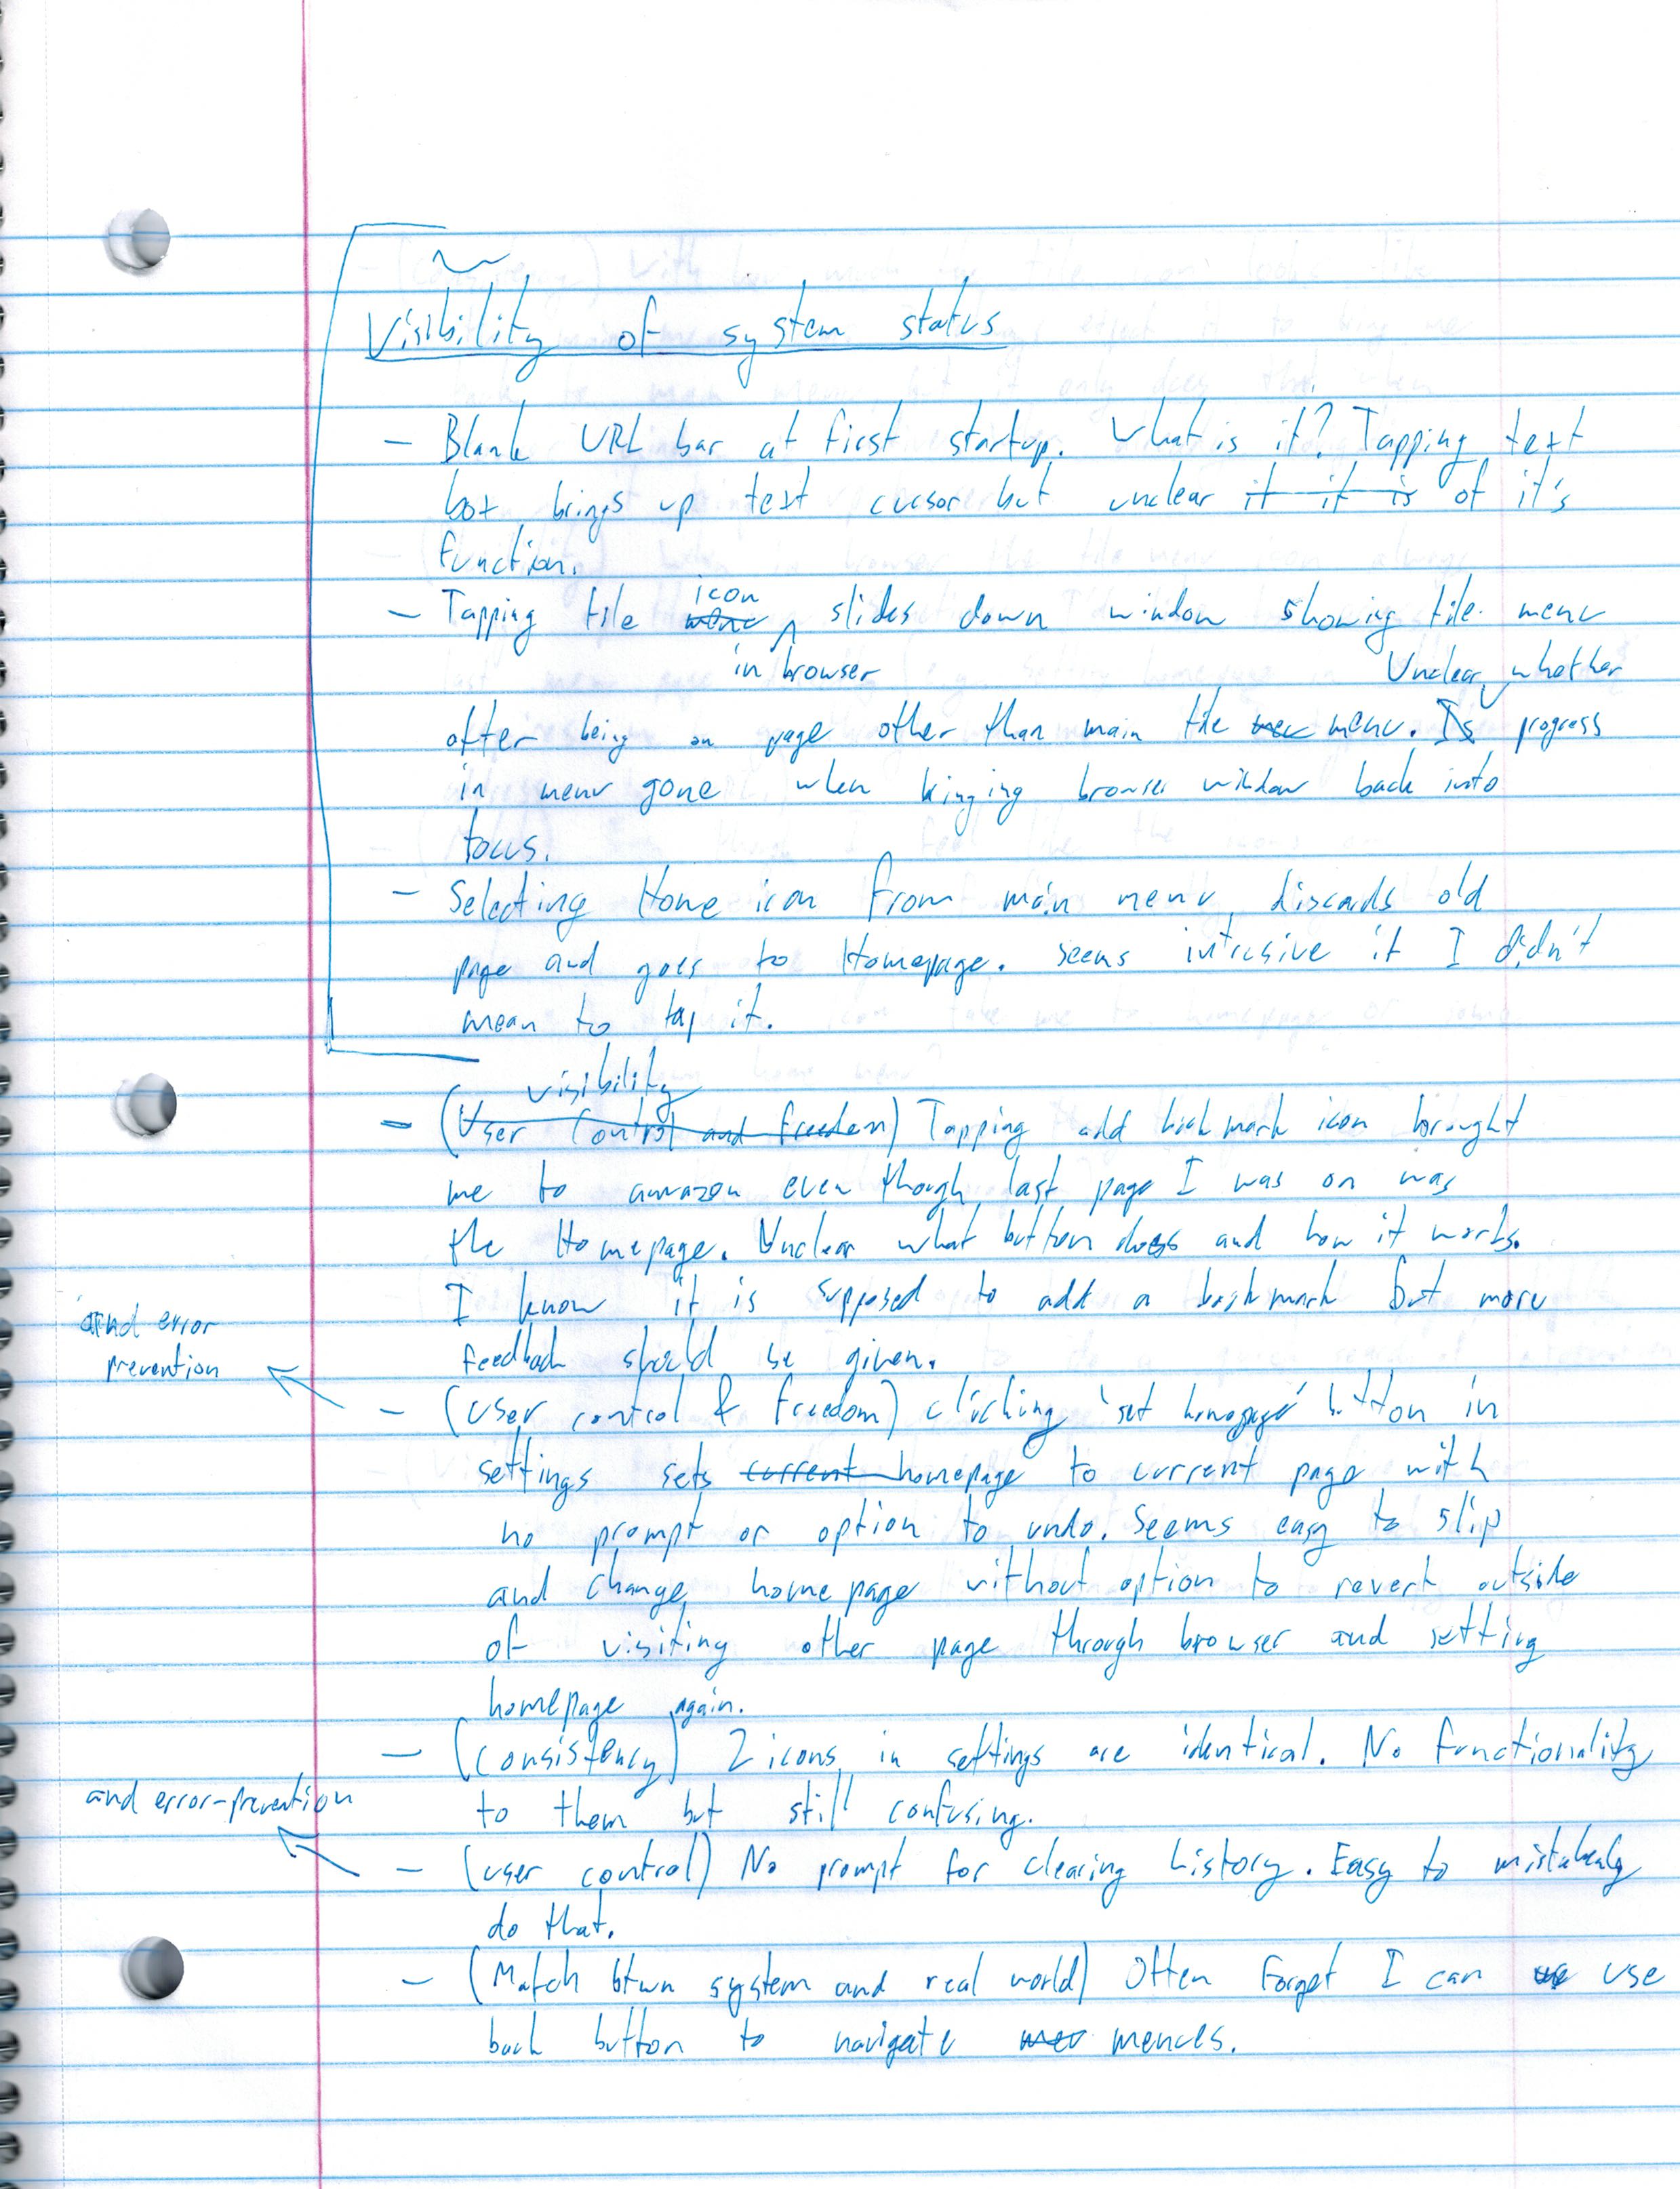 Visibility of system status
- Blank URL bar at first startup. What is it? Tapping text
box brings up text cursor but unclear it it is of it's
function.
- Tapping tile menu icon in browser slides down window showing tile menu
after being on page other than main tile menu. Is Unclear whether progress
in menu gone when bringing browser window back into
focus.
- Selecting Home icon from main menu discards old
page and goes to Homepage. Seems intrusive if I didn't
mean to tap it.
visibility
- (User Control and freedom) Tapping add bookmark icon brought
me to amazon even though last page I was on was
the Homepage. Unclear what button does and how it works.
I know it is supposed to add a bookmark but more
feedback should be given.
and error
prevention
- (User control & freedom) clicking 'set homepage' button in
settings sets current homepage to current page with
no prompt or option to undo. Seems easy to slip
and change homepage without option to revert outside
of visiting other page through browser and setting
homepage again.
- (consistency) 2 icons in settings are identical. No functionality
to them but still confusing.
and error-prevention
- (user control) No prompt for clearing history. Easy to mistakenly
do that.
- (Match btwn system and real world) Often forget I can use
back button to navigate menues.